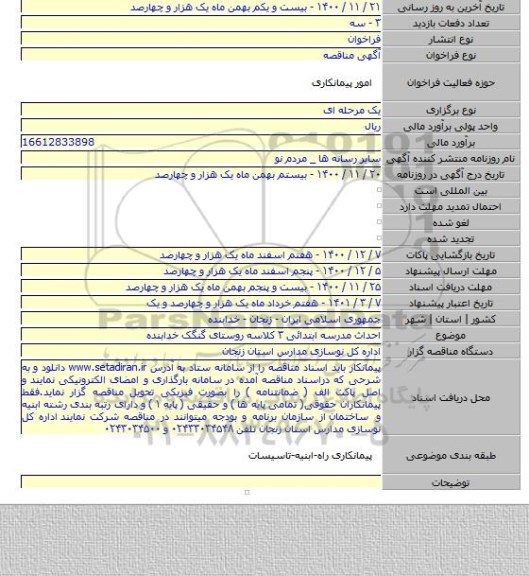 تاریخ آخرین به روز رسانی ۲۱ / ۱۱ / ۱۴۰۰ - بیست و یکم بهمن ماه یک هزار و چهارصد
تعداد دفعات بازدید ۳ - سه
نوع انتشار فراخوان
نوع فراخوان آگهی مناقصه
حوزه فعالیت فراخوان امور پیمانکاری
نوع برگزاری یک مرحله ای
واحد پولی برآورد مالی ریال
برآورد مالی 16612833898
نام روزنامه منتشر کننده آگهی سایر رسانه ها _ مردم نو
تاریخ درج آگهی در روزنامه ۲۰ / ۱۱ / ۱۴۰۰ - بیستم بهمن ماه یک هزار و چهارصد
بین المللی است
احتمال تمدید مهلت دارد
لغو شده
تجدید شده
تاریخ بازگشایی پاکات ۷ / ۱۲ / ۱۴۰۰ - هفتم اسفند ماه یک هزار و چهارصد
مهلت ارسال پیشنهاد ۵ / ۱۲ / ۱۴۰۰ - پنجم اسفند ماه یک هزار و چهارصد
مهلت دریافت اسناد ۲۵ / ۱۱ / ۱۴۰۰ - بیست و پنجم بهمن ماه یک هزار و چهارصد
تاریخ اعتبار پیشنهاد ۷ / ۳ / ۱۴۰۱ - هفتم خرداد ماه یک هزار و چهارصد و یک
کشور | استان | شهر جمهوری اسلامی ایران - زنجان - خدابنده
موضوع احداث مدرسه ابتدائی ۳ کلاسه روستای گنگک خدابنده
دستگاه مناقصه گزار اداره کل نوسازی مدارس استان زنجان
محل دریافت اسناد پیمانکار باید اسناد مناقصه را از سامانه ستاد به آدرس www.setadiran.ir دانلود و به
شرحی که دراسناد مناقصه آمده در سامانه بارگذاری و امضای الکترونیکی نمایند و
اصل پاکت الف ( ضمانتنامه ) را بصورت فیزیکی تحویل مناقصه گزار نماید.فقط
پیمانکاران حقوقی( تمامی پایه ها ) و حقیقی ( پایه ۱ ) و دارای رتبه بندی رشته ابنیه
و ساختمان از سازمان برنامه و بودجه میتوانند در مناقصه شرکت نمایند اداره کل
نوسازی مدارس استان زنجان تلفن ۰۲۴۳۳۰۳۴۵۴۸ و ۰۲۴۳۳۰۳۴۵۰۰
طبقه بندی موضوعی پیمانکاری راه-ابنیه-تاسیسات
توضیحات